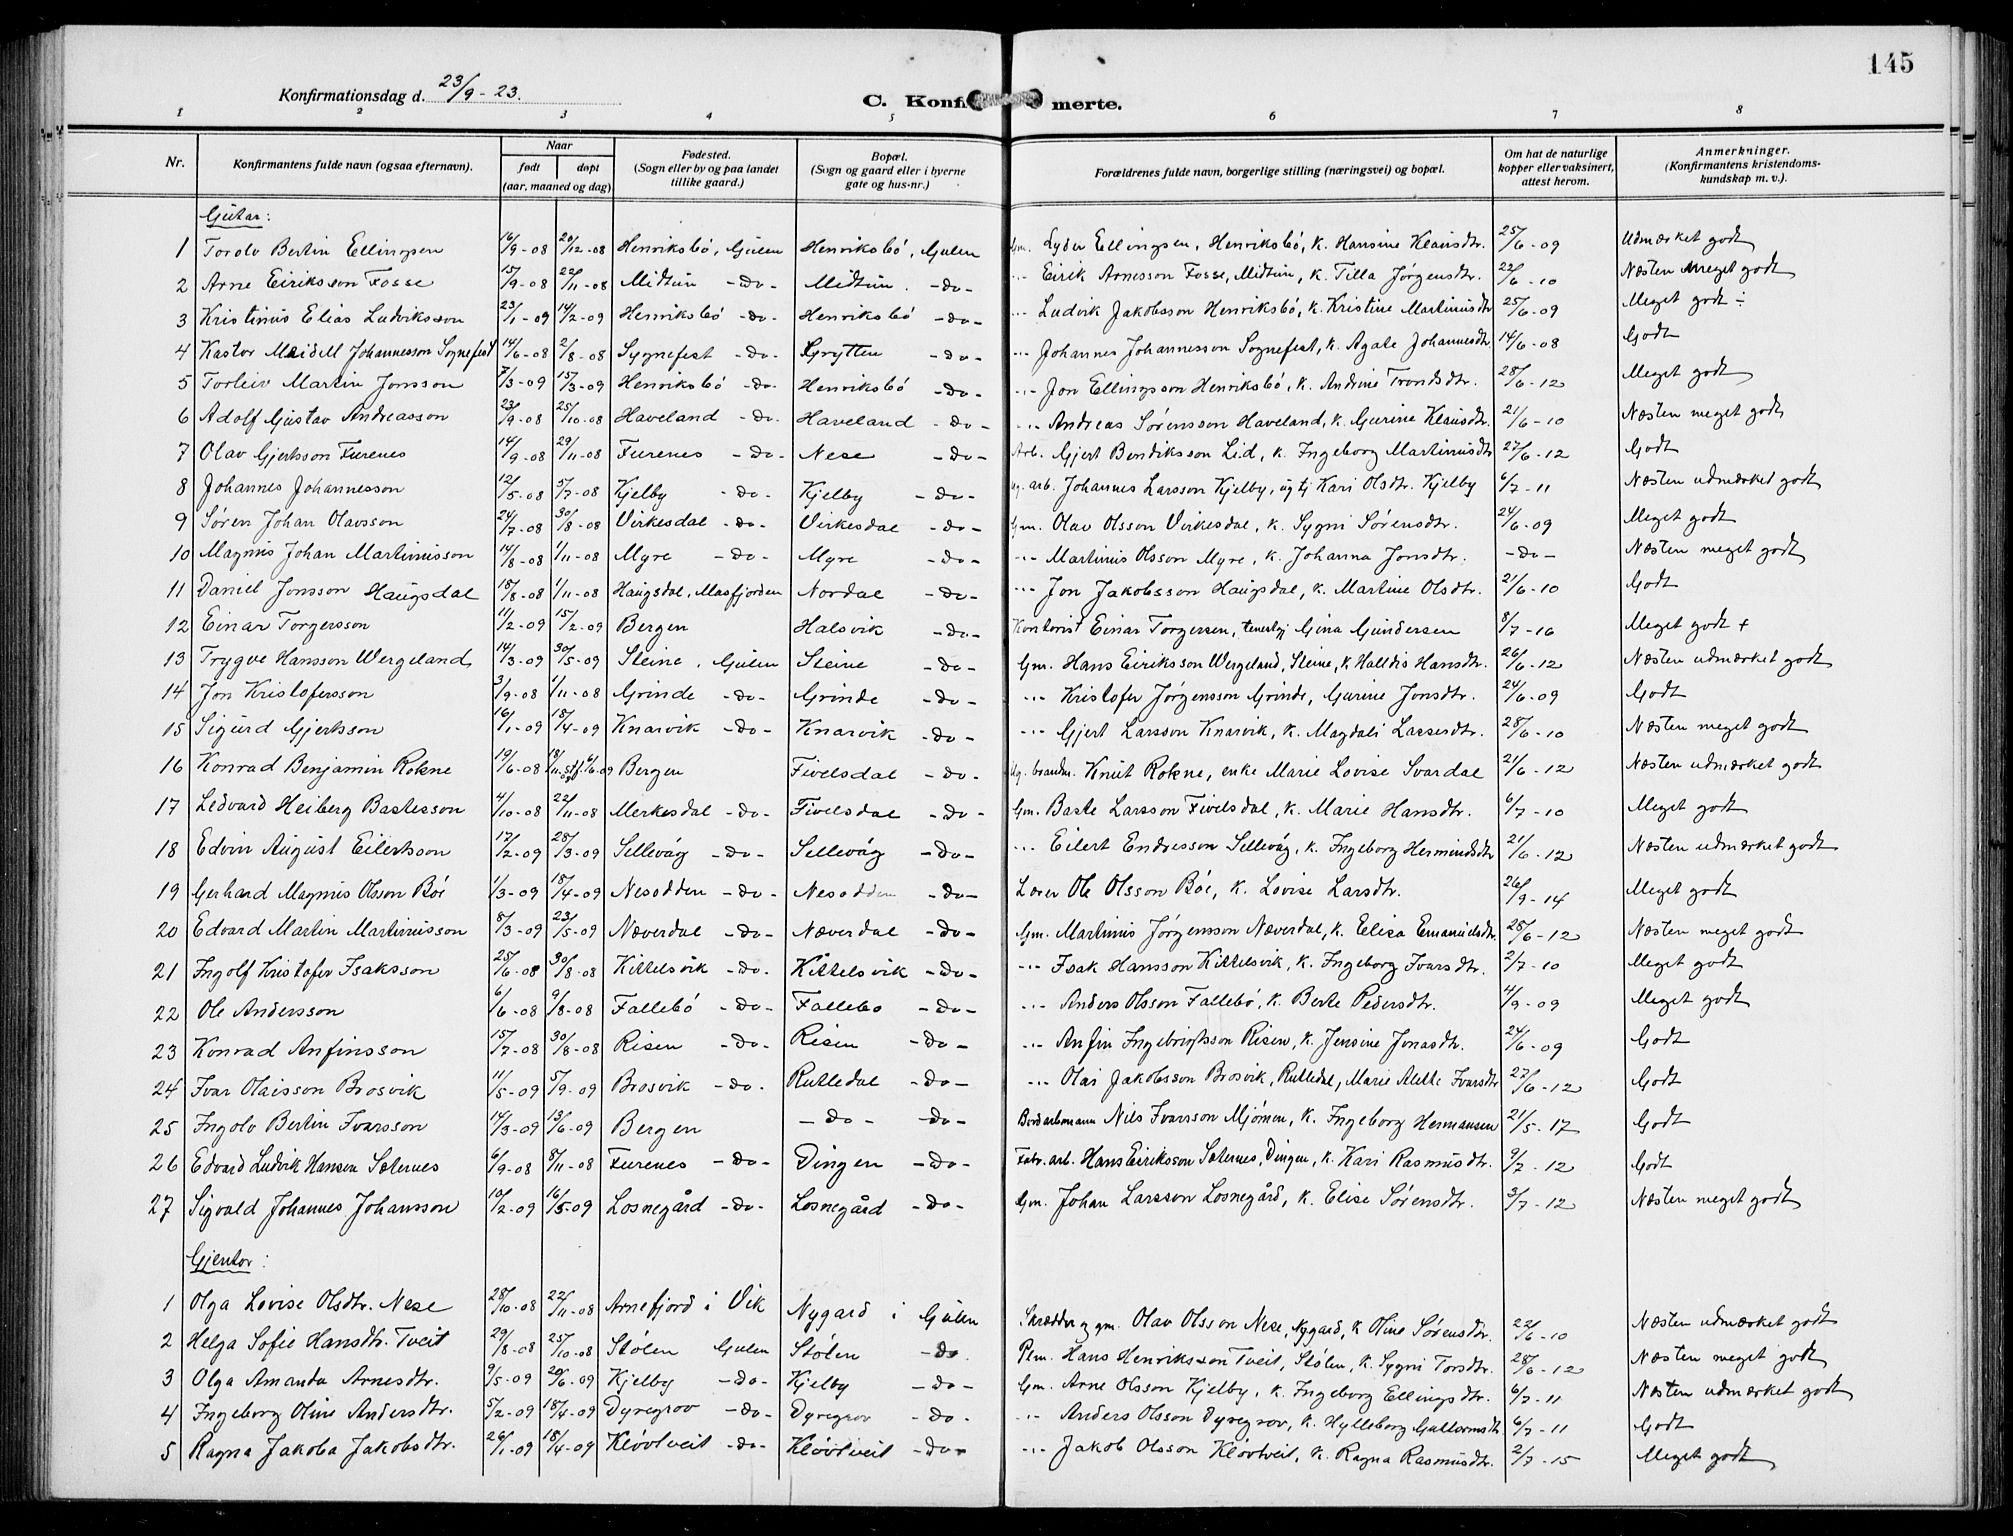 145
Konfirmationsdag d. 23/9 - 23.
C. Konfi merte.
1 2 3 4 5 6 7 8
Nr. | Konfirmantens fulde navn (ogsaa efternavn). | Naar født døpt (aar, maaned og dag) | Fødested. (Sogn eller by og paa landet tillike gaard.) | Bopæl. (Sogn og gaard eller i byerne gate og hus-nr.) | Forældrenes fulde navn, borgerlige stilling (næringsvei) og bopæl. | Om hat de naturlige kopper eller vaksinert, attest herom. | Anmerkninger. (Konfirmantens kristendoms-kundskap m. v.).
Gutar:
1 Tordv Bertin Ellingsen 16/9-08 20/12-08 Henriksbó, Gulen Henriksbó, Gulen Gm. Lyder Ellingsen, Henriksbó, K. Hansine Klausdtr. 25/6-09 Udmærket godt
2 Arne Eiriksson Fosse 15/9-08 22/11-08 Midtun -do- Midtun. -do- -"- Eirik Arnesson Fosse, Midtun, K. Tilla Jørgensdtr. 22/6-10 Næsten meget godt
3 Kristinus Elias Ludviksson 23/1-09 14/2-09 Henriksbó -do- Henriksbó -do- -"- Ludvik Jakobsson Henriksbó, K. Kristine Martinusdtr 25/6-09 Meget godt ÷
4 Kastor Meidell Johannesson Sognefest 14/6-08 2/8-08 Sygnefest -do- Grytten -do- -"- Johannes Johannesson Sognefest, K. Agate Johannesdtr 14/6-08 Godt
5 Torleiv Martin Jonsson 7/3-09 15/3-09 Henriksbó -do- Henriksbó -do- -"- Jon Ellingsson Henriksbó, K. Andrine Trondsdtr. 28/6-12 Meget godt
6 Adolf Gustav Andreasson 23/9-08 25/10-08 Haveland -do- Haveland -do- -"- Andreas Sørensson Haveland, K. Gurine Klausdtr. 21/6-10 Næsten meget godt
7 Olav Gjertsson Furenes 14/9-08 29/11-08 Furenes -do- Nese -do- Arb. Gjert Bendiksson Lid, K. Ingeborg Martinusdtr 27/6-12 Godt
8 Johannes Johannesson 12/5-08 5/7-08 Kjelby -do- Kjelby -do- Ug. arb. Johannes Larsson Kjelby, ug tj Kari Olsdtr. Kjelby 6/7-11 Næsten udmærket godt
9 Søren Johan Olavsson 24/7-08 30/8-08 Virkesdal -do- Virkesdal -do- Gm. Olav Olsson Virkesdal, K. Sygni Sørensdtr. 24/6-09 Meget godt
10 Magnus Johan Martinusson 14/8-08 1/11-08 Myre -do- Myre -do- -"- Martinus Olsson Myre, K. Johanna Jonsdtr. -do- Næsten meget godt
11 Daniel Jonsson Haugsdal 18/8-08 1/11-08 Haugsdal, Masfjorden Nordal -do- -"- Jon Jakobsson Haugsdal, K. Martine Olsdtr. 21/6-10 Godt
12 Einar Torgersson 11/2-09 15/2-09 Bergen Halsvik -do- Kontorist Einar Torgersen, tenestpj Gina Gundersen 8/7-16 Meget godt +
13 Trygve Hansson Wergeland 14/3-09 30/5-09 Steine, Gulen Steine -do- Gm. Hans Eiriksson Wergeland, Steine, K. Halldis Hansdtr. 26/6-12 Næsten udmærket godt
14 Jon Kristofersson 3/9-08 1/11-08 Grinde -do- Grinde -do- -"- Kristofer Jørgensson Grinde, Gurine Jonsdtr. 24/6-09 Godt
15 Sigurd Gjertsson 16/1-09 18/4-09 Knarvik -do- Knarvik -do- -"- Gjert Larsson Knarvik, K. Magdali Lassesdtr. 28/6-10 Næsten meget godt
16 Konrad Benjamin Rokne 19/6-08 Bergen Fivelsdal -do- Ug. brandm. Knut Rokne, enke Marie Lovise Svardal 21/6-12 Næsten udmærket godt
17 Ledvard Heiberg Bastesson 4/10-08 22/11-08 Merkesdal -do- Fivelsdal -do- Gm. Baste Larsson Fivelsdal, K. Marie Hansdtr. 6/7-10 Meget godt
18 Edvin August Eilertsson 17/2-09 28/3-09 Sellevåg -do- Sellevåg -do- -"- Eilert Endresson Sellevåg, K. Ingeborg Hermundsdtr 21/6-12 Næsten udmærket godt
19 Gerhard Magnus Olsson Bóe 1/3-09 18/4-09 Nesodden -do- Nesodden -do- Lærer Ole Olsson Bóe, K. Lovise Larsdtr. 26/9-14 Meget godt
20 Edvard Martin Martinusson 8/3-09 23/5-09 Næverdal -do- Næverdal -do- Gm. Martinus Jörgensson Næverdal, K. Elisa Emanuelsdtr. 28/6-12 Næsten meget godt
21 Ingolf Kristofer Isaksson 25/6-08 30/8-08 Kittelsvik -do- Kittelsvik -do- -"- Isak Hansson Kittelsvik, K. Ingeborg Ivarsdtr. 2/7-10 Meget godt
22 Ole Andersson 6/6-08 9/8-08 Fallebó -do- Fallebo -do- -"- Anders Olsson Fallebó, K. Berte Pedersdtr. 4/9-09 Meget godt
23 Konrad Anfinsson 15/7-08 30/8-08 Risen -do- Risen -do- -"- Anfin Ingebrigtsson Risen, K. Jensine Jonasdtr. 24/6-09 Godt
24 Ivar Olaisson Brosvik 11/5-09 5/9-09 Brosvik -do- Rutledal -do- -"- Olai Jakobsson Brosvik, Rutledal, Marie Alette Ivarsdtr 27/6-12 Godt
25 Ingolv Bertin Ivarsson 14/3-09 13/6-09 Bergen -do- -do- Bordarbmann Nils Ivarsson Mjömen, K. Ingeborg Hermansen 21/5-17 Godt
26 Edvard Ludvik Hansen Sæternes 6/9-08 8/11-08 Furenes -do- Dingen -do- Fabr. arb. Hans Eiriksson Sæternes, Dingen, K. Kari Rasmusdtr. 9/7-12 Godt
27 Sigvald Johannes Johansson 10/2-09 16/5-09 Losnegård -do- Losnegård -do- Gm. Johan Larsson Losnegård, K. Elise Sörensdtr. 3/7-12 Næsten meget godt
Gjentor:
1 Olga Lovise Olsdtr. Nese 28/10-08 22/11-08 Arnefjord i Vik Nygard i Gulen Skrædder og gm. Olav Olsson Nese, Nygard, K Oline Sørensdtr. 22/6-10 Næsten udmærket godt
2 Helga Sofie Hansdtr. Tveit 29/8-08 25/10-08 Stølen Gulen Stølen -do. Plm. Hans Henriksson Tveit, Stølen, K. Sygni Torsdtr. 28/6-12 Næsten meget godt
3 Olga Amanda Arnesdtr. 9/5-09 20/6-09 Kjelby -do- Kjelby -do- Gm. Arne Olsson Kjelby, K. Ingeborg Ellingsdtr. 6/7-11 Næsten udmærket godt
4 Ingeborg Oline Andersdtr. 5/2-09 18/4-09 Dyregrov -do- Dyregrov -do- -"- Anders Olsson Dyregrov, K. Hylleborg Guttormsdtr 6/7-11 Godt
5 Ragna Jakoba Jakobsdtr. 26/1-09 18/4-09 Klóvtveit -do- Klóvtveit -do- -"- Jakob Olsson Klóvtveit, K. Ragna Rasmusdtr. 2/7-15 Meget godt